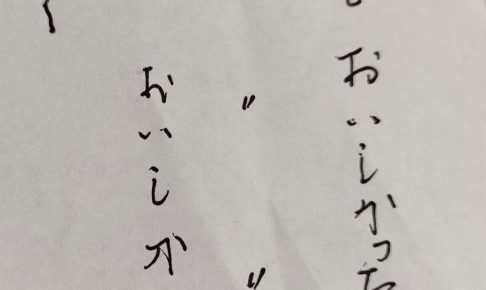 おいしかった
〃 〃
おいしか